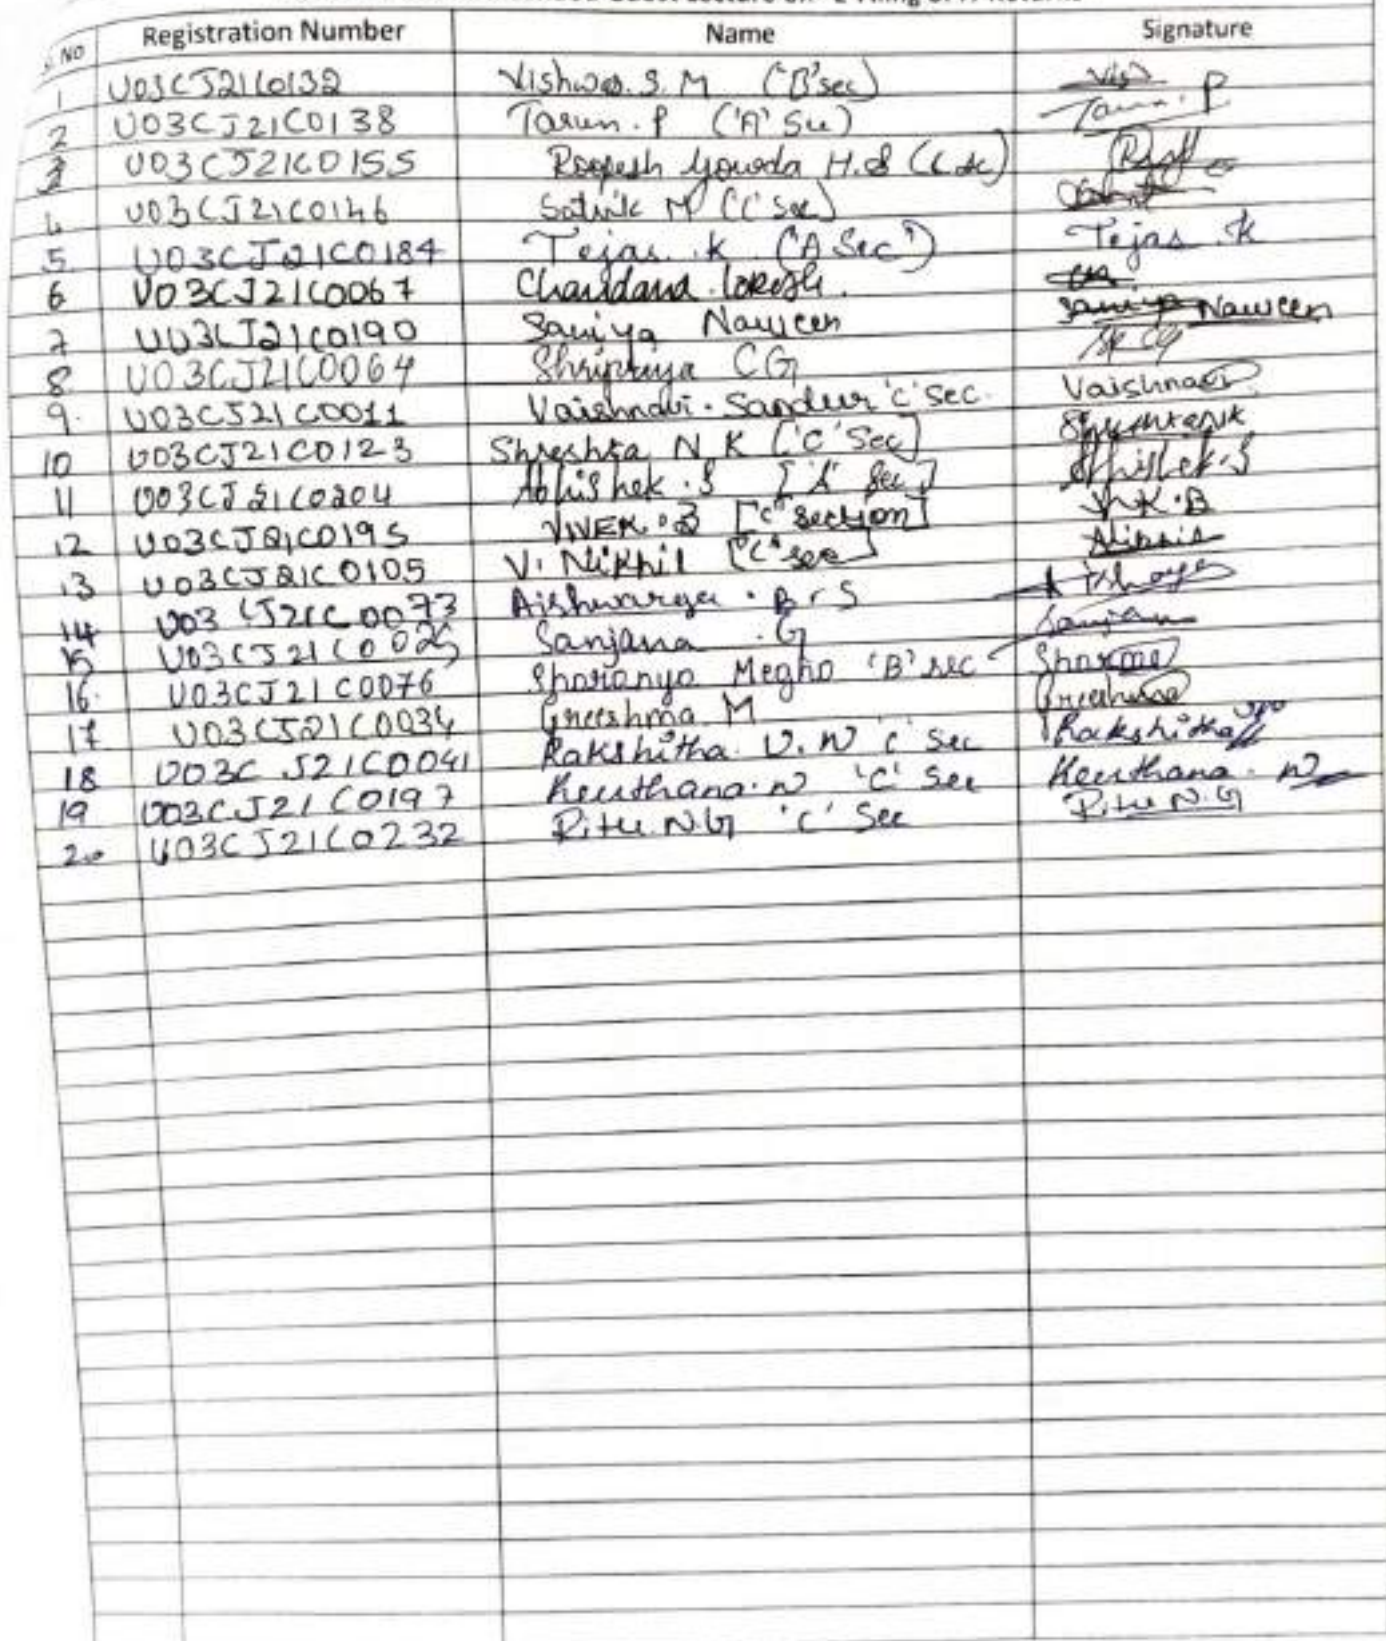 Guest Lecture on "E-Filing of IT Returns"
No Registration Number Name Signature
1 U03CJ21C0132 Vishwas. S. M ('B' sec)
2 U03CJ21C0138 Tarun. P ('A' Sec) Tarun. P
3 U03CJ21C0155 Roopesh Gowda H.S (C sec)
4 U03CJ21C0146 Satvik M ('C' Sec)
5. U03CJ21C0184 Tejas. K ('A Sec') Tejas. K
6 U03CJ21C0067 Chandana lokesh.
7 U03CJ21C0190 Saniya Nawreen Saniya Nawreen
8. U03CJ21C0064 Shripriya CG
9. U03CJ21C0011 Vaishnavi. Sandur 'C' sec. Vaishnavi
10 U03CJ21C0123 Shreshta N K ['C' Sec]
11 U03CJ21C0204 Abhishek. S ['A' Sec] Abhishek. S
12 U03CJ21C0195 VIVEK. B ["C" Section] B
13 U03CJ21C0105 V. Nikhil ["C" sec] Nikhil
14 U03CJ21C0073 Aishwarya. B. S
15 U03CJ21C0025 Sanjana. G Sanjana
16. U03CJ21C0076 Sharanya Megha 'B' sec
17 U03CJ21C0034 Greeshma M Greeshma
18 U03CJ21C0041 Rakshitha. U. N 'C' Sec Rakshitha
19 U03CJ21C0197 Keerthana. N 'C' Sec Keerthana. N
20 U03CJ21C0232 Ritu. N. G 'C' Sec Ritu N. G